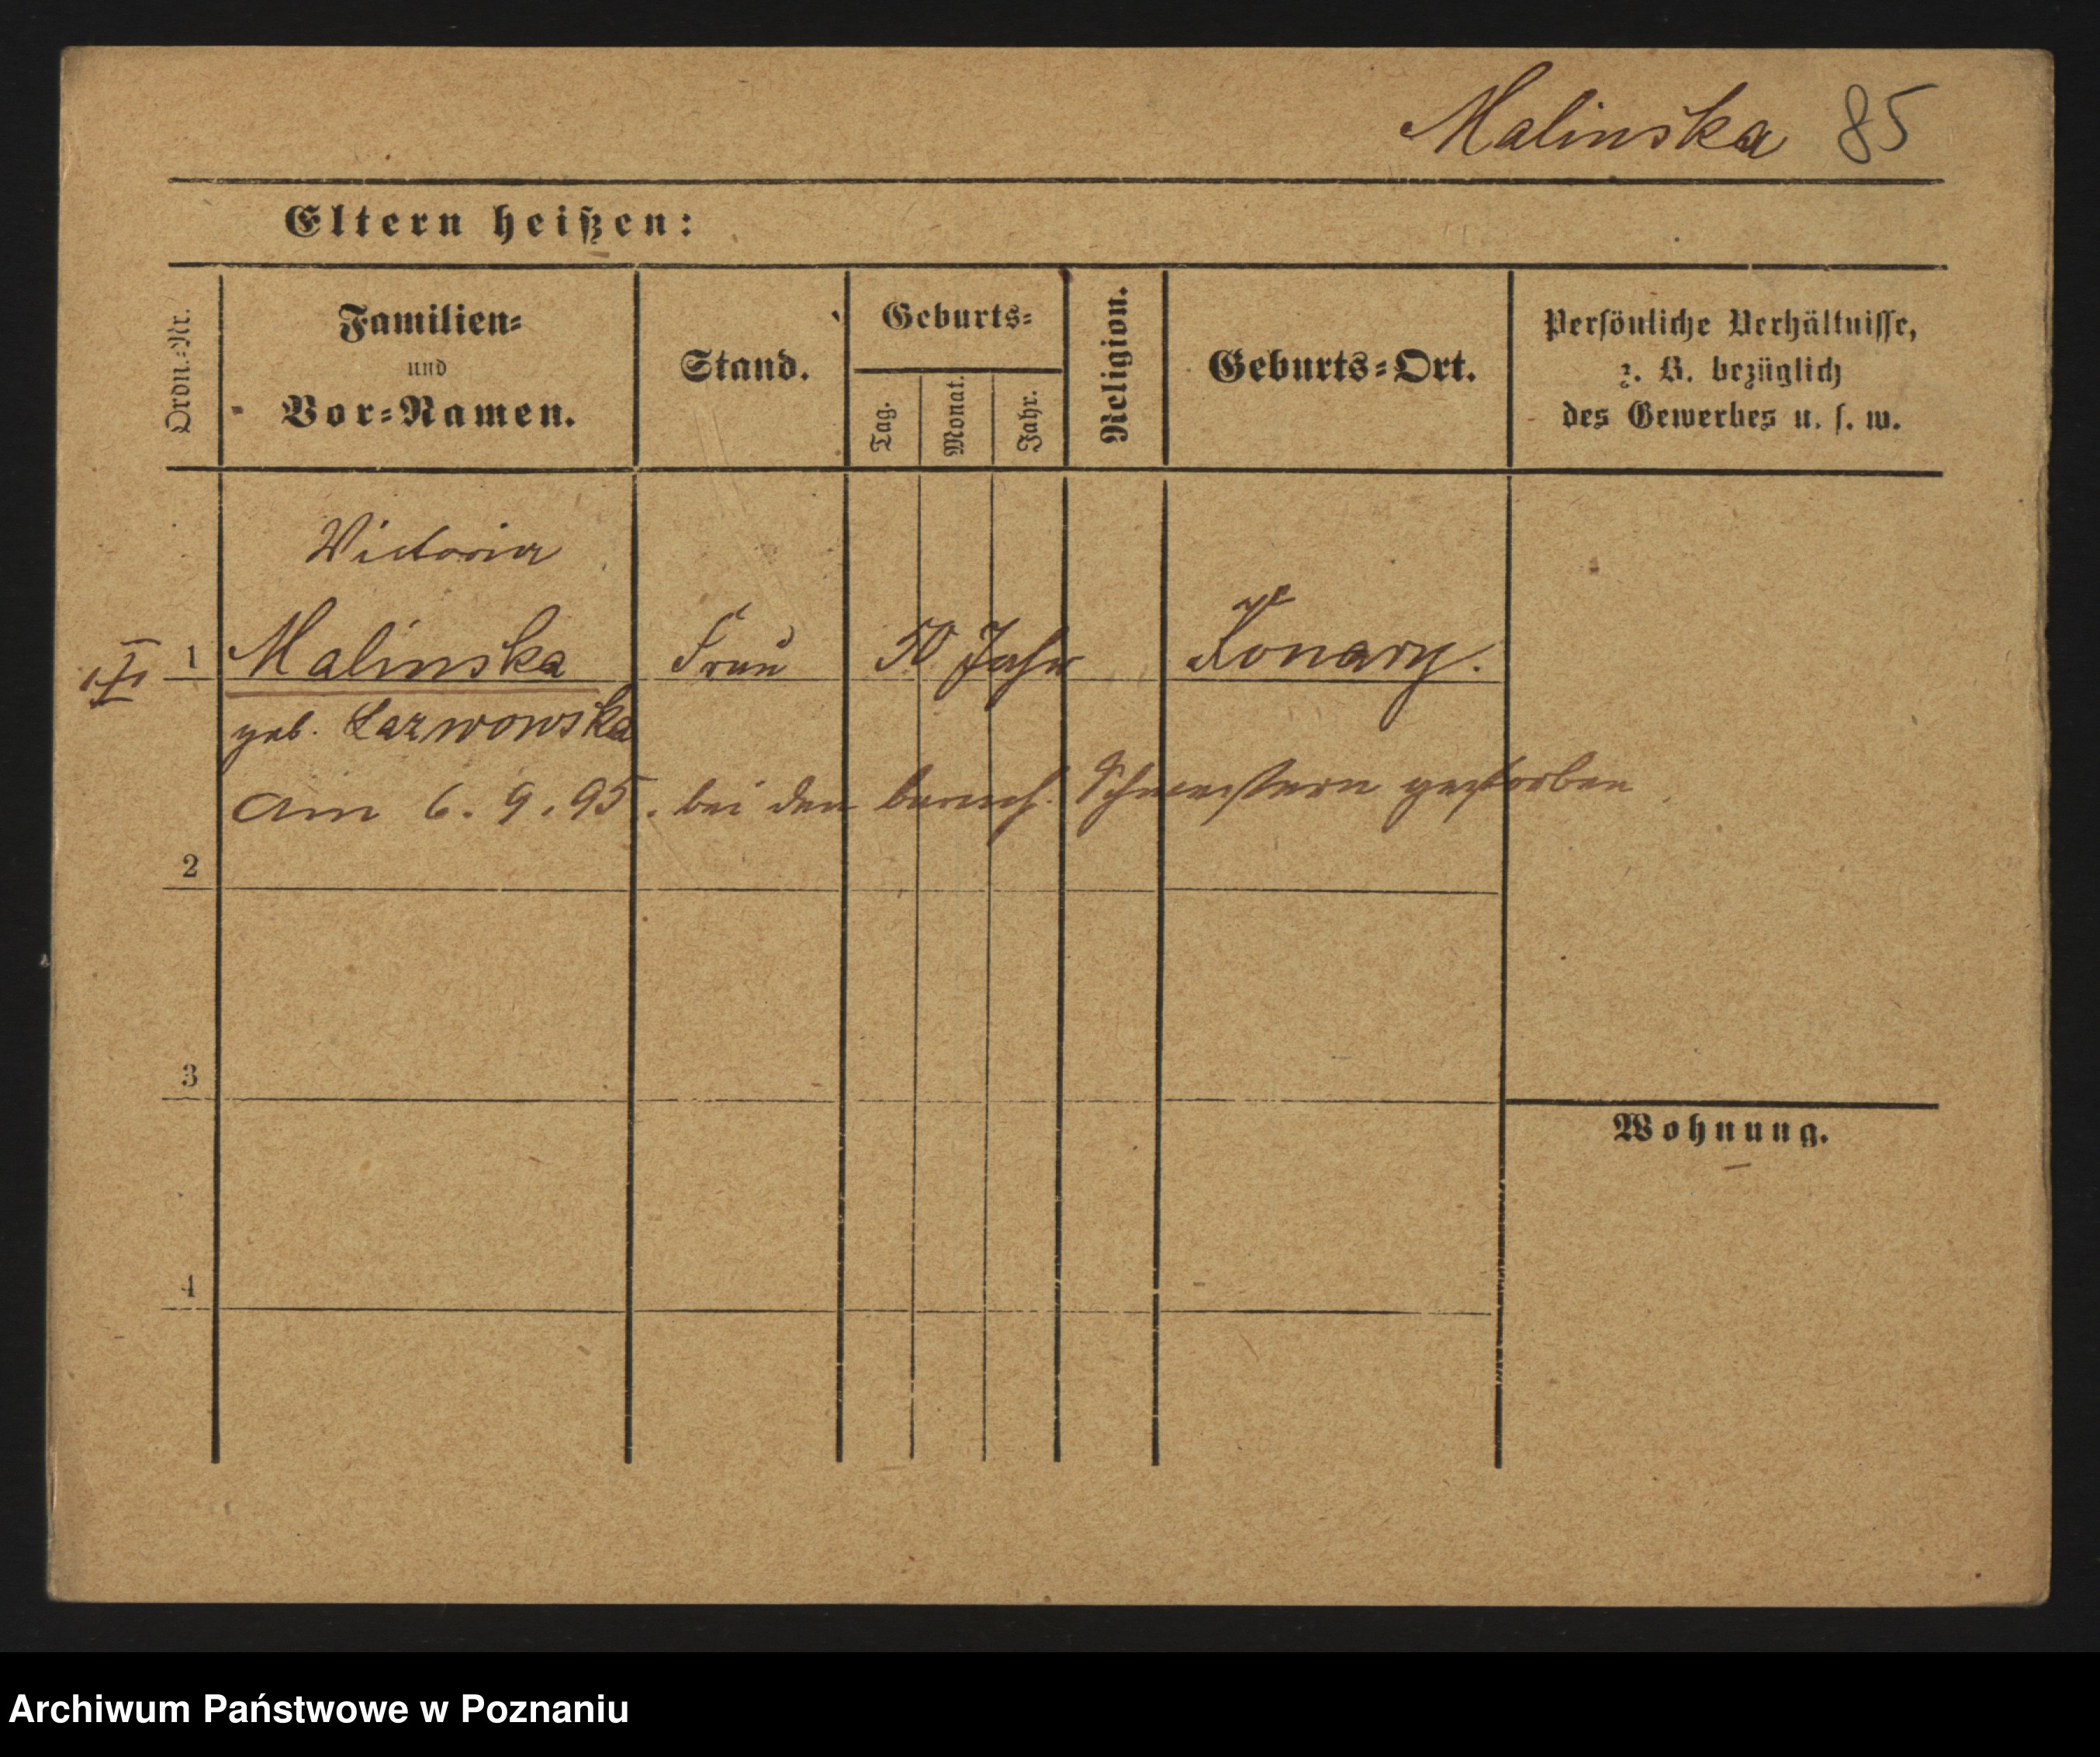 Malinska 85
Eltern heißen:
Ordn.-Nr.
Familien-
und
Vor-Namen.
Stand.
Geburts-
Tag.
Monat.
Jahr.
Religion.
Geburts-Ort.
Persönliche Verhältnisse,
z. B. bezüglich
des Gewerbes u. s. w.
Victoria
1 Malinska Frau 50 Jahr Konary.
geb. Lazwowska
Am 6. 9. 95. bei den barmh. Schwestern gestorben
2
3
Wohnung.
4
Archiwum Państwowe w Poznaniu